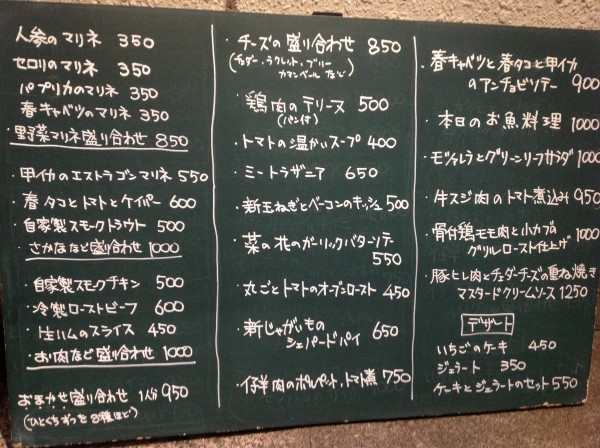 人参のマリネ 350
セロリのマリネ 350
パプリカのマリネ 350
春キャベツのマリネ 350
・野菜マリネ盛り合わせ 850
・甲イカのエストラゴンマリネ 550
・春タコとトマトとケイパー 600
・自家製スモークトラウト 500
・さかななど盛り合わせ 1000
・自家製スモークチキン 500
・冷製ローストビーフ 600
・生ハムのスライス 450
・お肉など盛り合わせ 1000
おまかせ盛り合わせ 1人分 950
(ひとくちずつを8種ほど)
・チーズの盛り合わせ 850
(チェダー・ラクレット・ブリー
カマンベール など)
・鶏肉のテリーヌ 500
(パン付)
・トマトの温かいスープ 400
・ミートラザニア 650
・新玉ねぎとベーコンのキッシュ 500
・菜の花のガーリックバターソテー
550
・丸ごとトマトのオーブンロースト 450
・新じゃがいもの
シェパードパイ 650
・仔羊肉のポルペット,トマト煮 750
・春キャベツと春タコと甲イカ
のアンチョビソテー 900
・本日のお魚料理 1000
・モッツァレラとグリーンリーフサラダ 1000
・牛スジ肉のトマト煮込み 950
・骨付鶏モモ肉と小カブの
グリルロースト仕上げ 1000
・豚ヒレ肉とチェダーチーズの重ね焼き
マスタードクリームソース 1250
デザート
・いちごのケーキ 450
ジェラート 350
ケーキとジェラートのセット 550